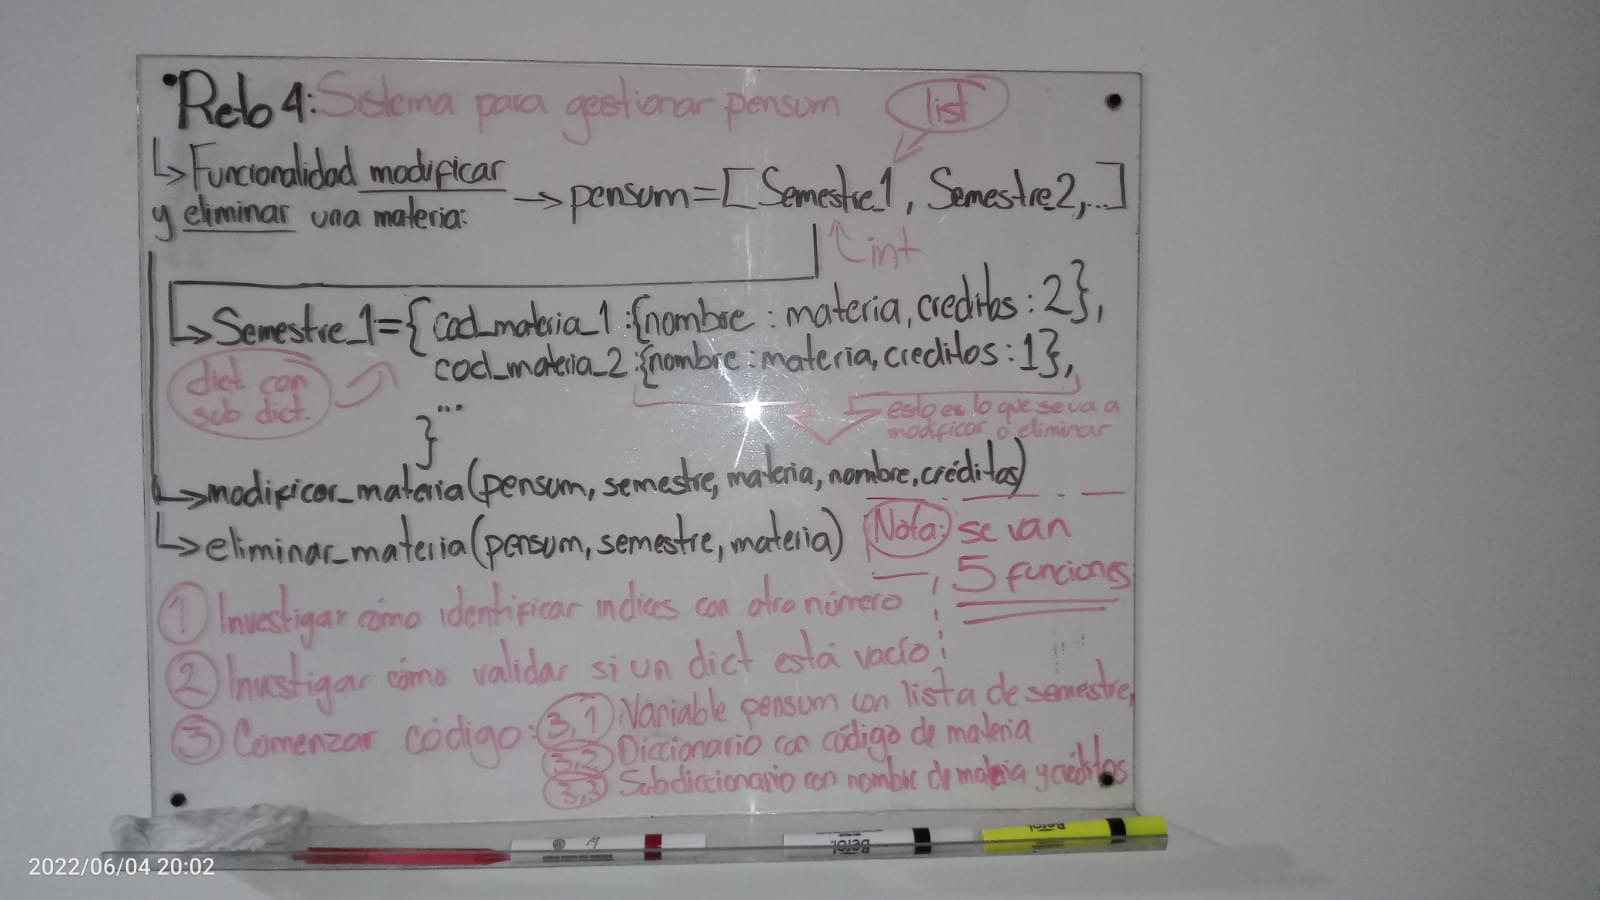 Reto 4: Sistema para gestionar pensum
list
↳ Funcionalidad modificar
y eliminar una materia:
→ pensum=[Semestre1, Semestre2,...]
int
↳ Semestre_1={cod_materia_1:{nombre: materia, creditos: 2},
cod_materia_2:{nombre: materia, creditos: 1},
...
}
dict con
sub dict.
esto es lo que se va a
modificar o eliminar
↳ modificar_materia(pensum, semestre, materia, nombre, créditos)
↳ eliminar_materia(pensum, semestre, materia)
Nota: se van
5 funciones
① Investigar cómo identificar indices con otro número
② Investigar cómo validar si un dict está vacío
③ Comenzar código:
3,1 Variable pensum con lista de semestre,
3,2 Diccionario con código de materia
3,3 Subdiccionario con nombre de materia y créditos
Berol
Berol
2022/06/04 20:02